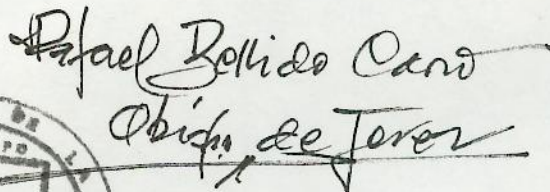 Rafael Bellido Caro
Obispo de Jerez
DE LA